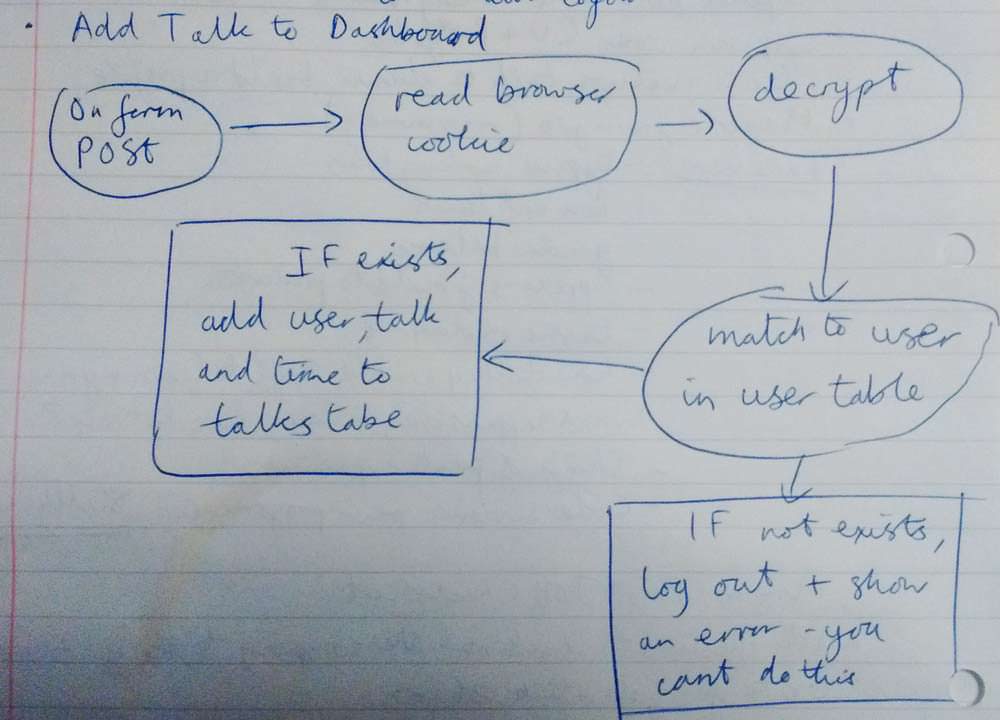 • Add Talk to Dashboard
On form
POST
read browser
cookie
decrypt
match to user
in user table
IF exists,
add user, talk
and time to
talks tabe
IF not exists,
log out + show
an error - you
cant do this